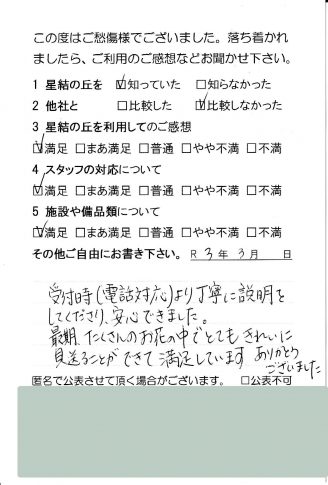 この度はご愁傷様でございました。落ち着かれ
ましたら、ご利用のご感想などお聞かせ下さい。
1 星結の丘を ☑知っていた □知らなかった
2 他社と □比較した ☑比較しなかった
3 星結の丘を利用してのご感想
☑満足 □まあ満足 □普通 □やや不満 □不満
4 スタッフの対応について
☑満足 □まあ満足 □普通 □やや不満 □不満
5 施設や備品類について
☑満足 □まあ満足 □普通 □やや不満 □不満
その他ご自由にお書き下さい。 R 3年 3月 日
受付時(電話対応)より丁寧に説明を
してくださり、安心できました。
最期、たくさんのお花の中でとてもきれいに
見送ることができて満足しています ありがとう
ございました
匿名で公表させて頂く場合がございます。 □公表不可